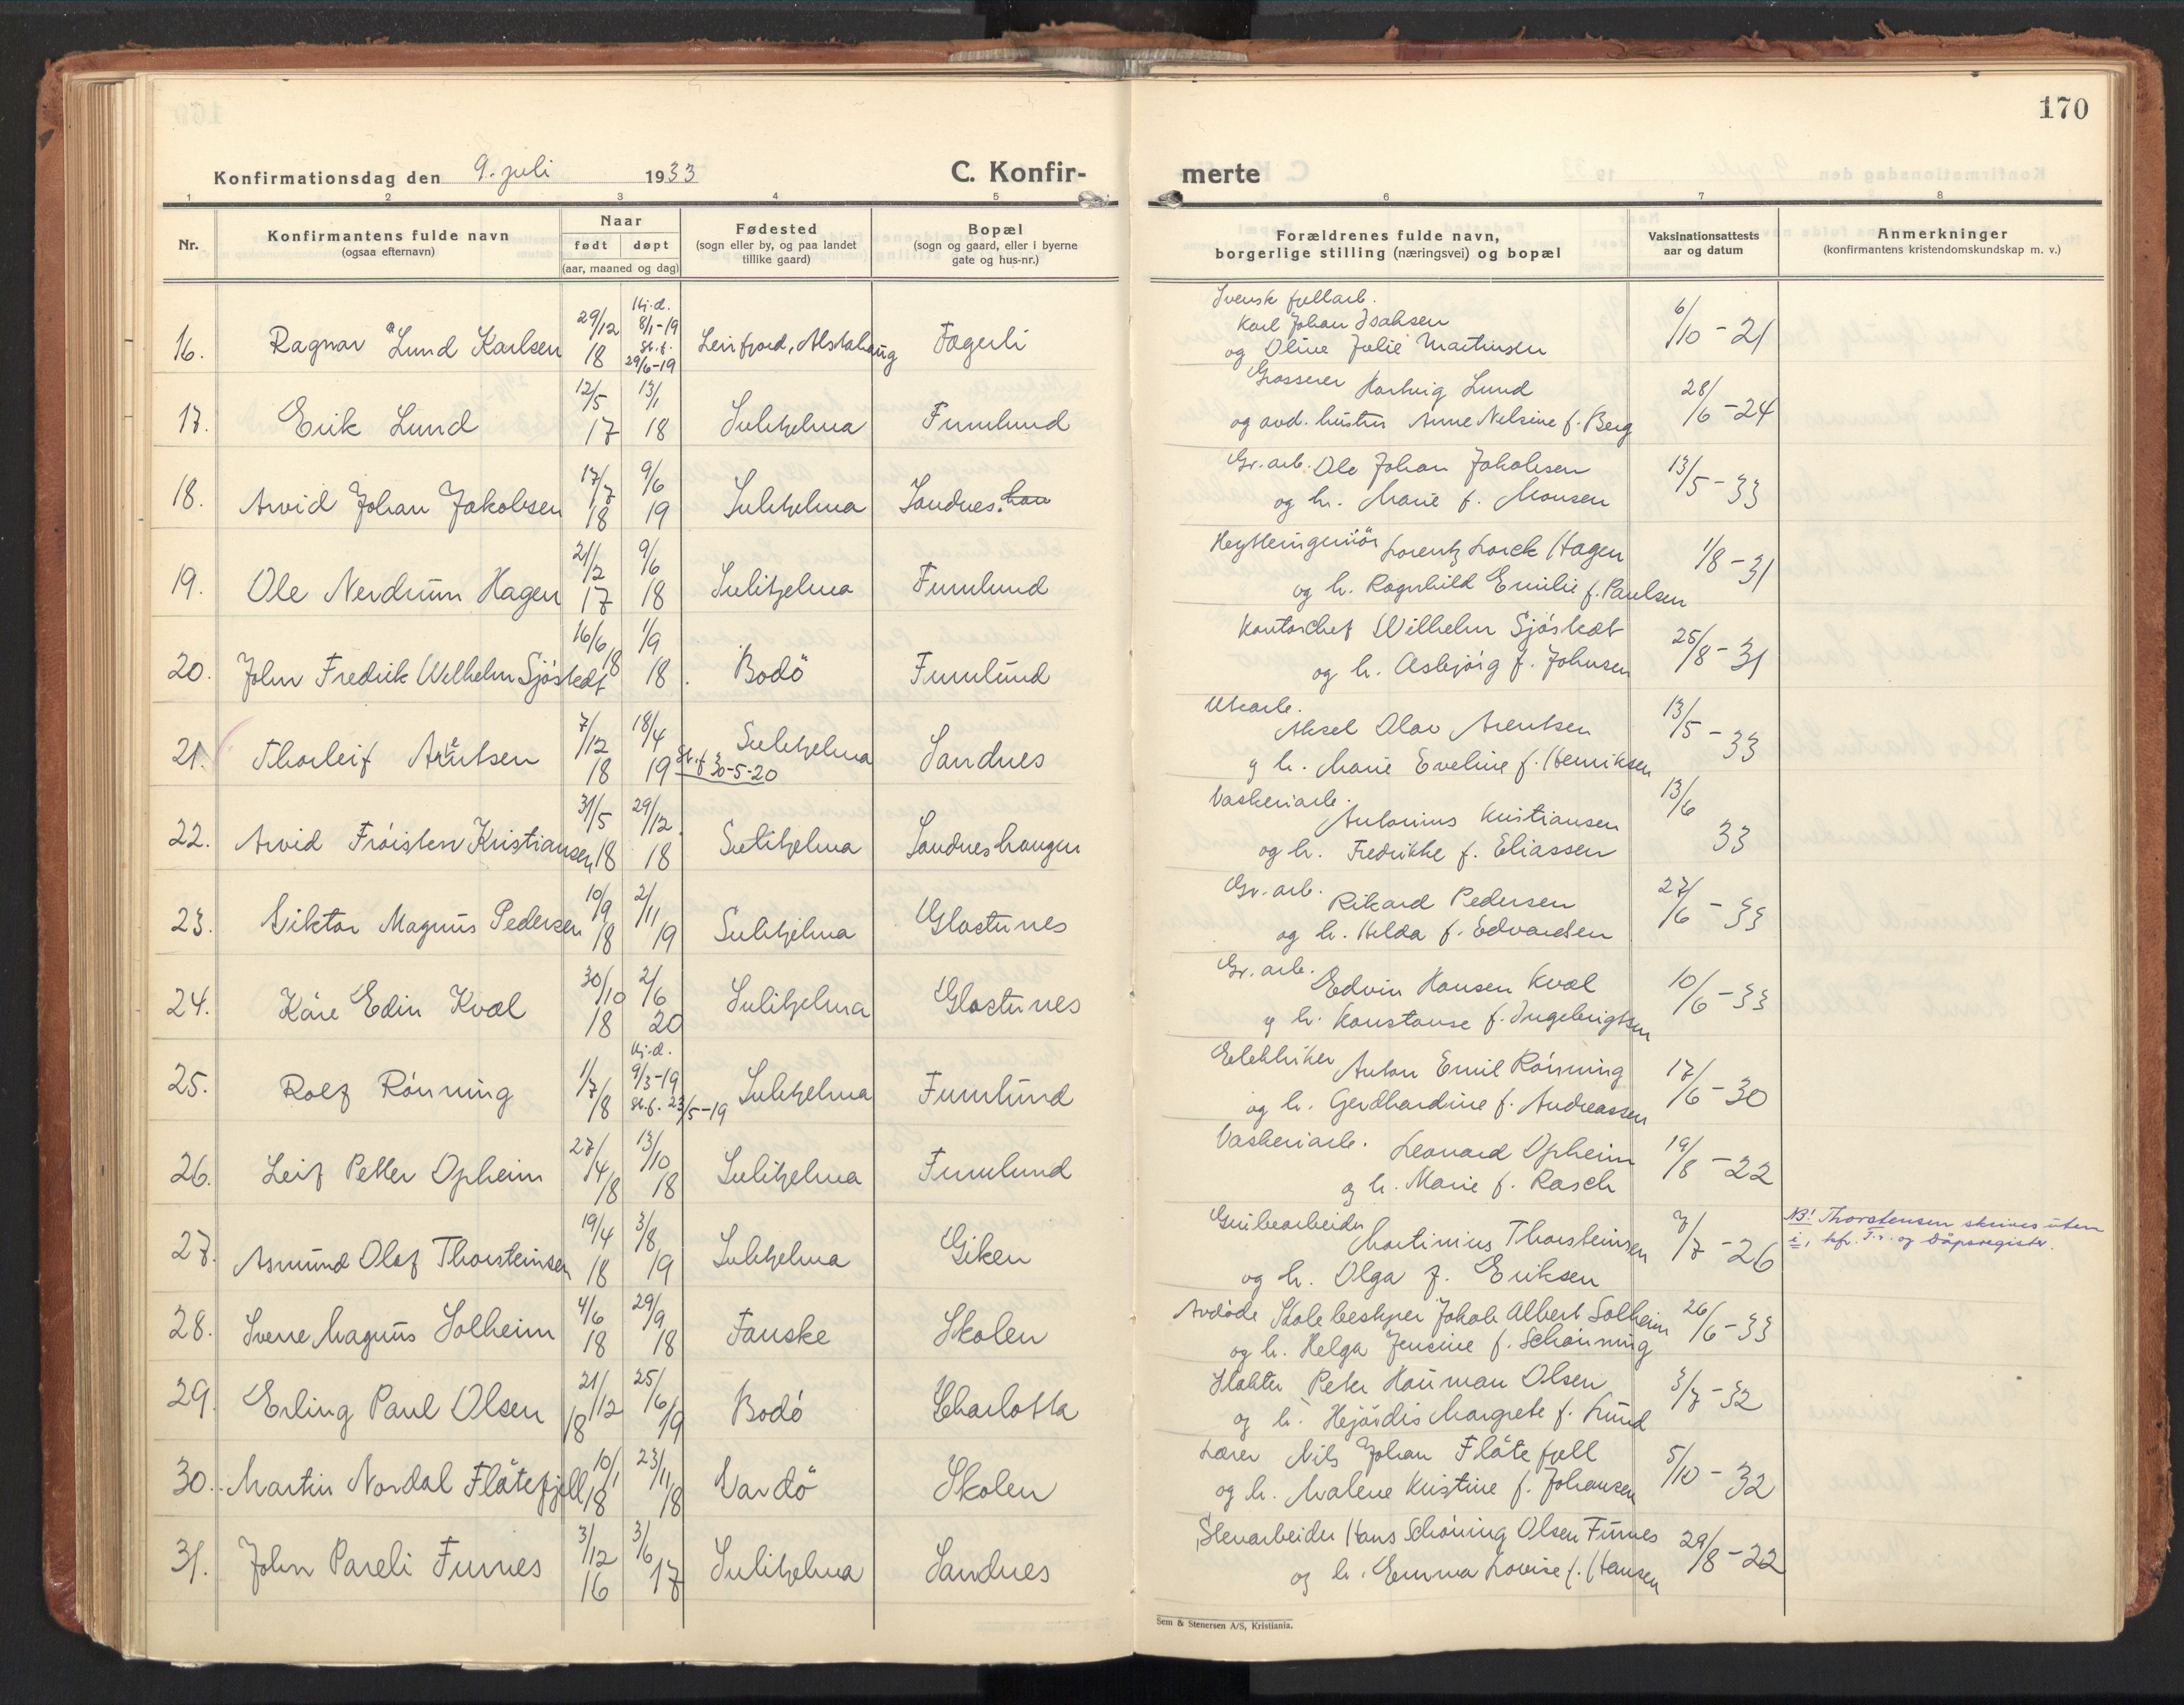 170
Konfirmationsdag den 9. juli 1933 C. Konfir-
merte
1 2 3 4 5 6 7 8
Nr.
Konfirmantens fulde navn
(ogsaa efternavn)
Naar
født døpt
(aar, maaned og dag)
Fødested
(sogn eller by, og paa landet
tillike gaard)
Bopæl
(sogn og gaard, eller i byerne
gate og hus-nr.)
Forældrenes fulde navn,
borgerlige stilling (næringsvei) og bopæl
Vaksinationsattests
aar og datum
Anmerkninger
(konfirmantens kristendomskundskap m. v.)
16. Ragnar Lund Karlsen 29/12 18 Hj.d. 8/1-19 St.f. 29/6-19 Leirfjord, Alstahaug Fagerli
Svensk fjellarb.
Karl Johan Isaksen
og Oline Julie Martinsen 6/10 - 21
17. Erik Lund 12/5 17 13/1 18 Sulitjelma Furulund
Grosserer Hartvig Lund
og avd. hustru Anne Nelsine f. Berg 28/6 - 24
18. Arvid Johan Jakobsen 17/7 18 9/6 19 Sulitjelma Sandnes.
Gr.arb. Ole Johan Jakobsen
og h. Marie f. Monsen 13/5 - 33
19. Ole Nerdrum Hagen 21/2 17 9/6 18 Sulitjelma Furulund
Hytteingeniör Lorentz Lorck Hagen
og h. Ragnhild Emilie f. Paulsen 1/8 - 31
20. John Fredrik Wilhelm Sjöstedt 16/6 18 1/9 18 Bodö Furulund
Kontorchef Wilhelm Sjöstedt
og h. Asbjörg f. Johnsen 25/8 - 31
21. Thorleif Arentsen 7/12 18 18/4 19 St.f 30-5-20 Sulitjelma Sandnes
Utearb.
Aksel Olav Arentsen
g h. Marie Eveline f. Henriksen 13/5 - 33
22. Arvid Fröisten Kristiansen 31/5 18 29/12 18 Sulitjelma Sandneshaugen
Vaskeriarb.
Antonius Kristiansen
og h. Fredrikke f. Eliassen 13/6 33
23. Viktor Magnus Pedersen 10/9 18 2/11 19 Sulitjelma Glastunes
Gr.arb. Rikard Pedersen
og h. Hilda f. Edvardsen 27/6 - 33
24. Kåre Edin Kval 30/10 18 2/6 20 Sulitjelma Glastunes
Gr.arb. Edvin Hansen Kval
g h. Konstanse f. Ingebrigtsen 10/6 - 33
25. Rolf Rönning 1/7 18 Hj.d. 9/3-19 St.f. 23/5-19 Sulitjelma Furulund
Elektriker Anton Emil Rönning
og h. Gerdhardine f. Andreassen 17/6 - 30
26. Leif Petter Opheim 27/4 18 13/10 18 Sulitjelma Furulund
Vaskeriarb. Leonard Opheim
og h. Marie f. Rasch 19/8 - 22
27. Asmund Olaf Thorsteinsen 19/4 18 3/8 19 Sulitjelma Giken
Grubearbeider Martinius Thorsteinsen
og h. Olga f. Eriksen 7/7 - 26
NB! Thorstensen skrives uten
i, kfr. F.r. og Dåpsregister.
28. Sverre Magnus Solheim 4/6 18 29/9 18 Fauske Skolen
Avdöde Skolebestyrer Jakob Albert Solheim
og h. Helga Jensine f. Schönning 26/6 - 33
29. Erling Paul Olsen 21/12 18 25/6 19 Bodö Charlotta
Slakter Peter Hauman Olsen
og h. Hejördis Margrete f. Lund 3/7 - 32
30. Martin Nordal Flåtefjell 10/1 18 23/11 18 Vardö Skolen
Lærer Nils Johan Flåtefjell
og h. Malene Kristine f. Johansen 5/10 - 32
31. John Pareli Furnes 3/12 16 3/6 17 Sulitjelma Sandnes
Stenarbeider Hans Schöning Olsen Furnes
og h. Emma Lovise f. Hansen 29/8 - 22
Sem & Stenersen A/S, Kristiania.